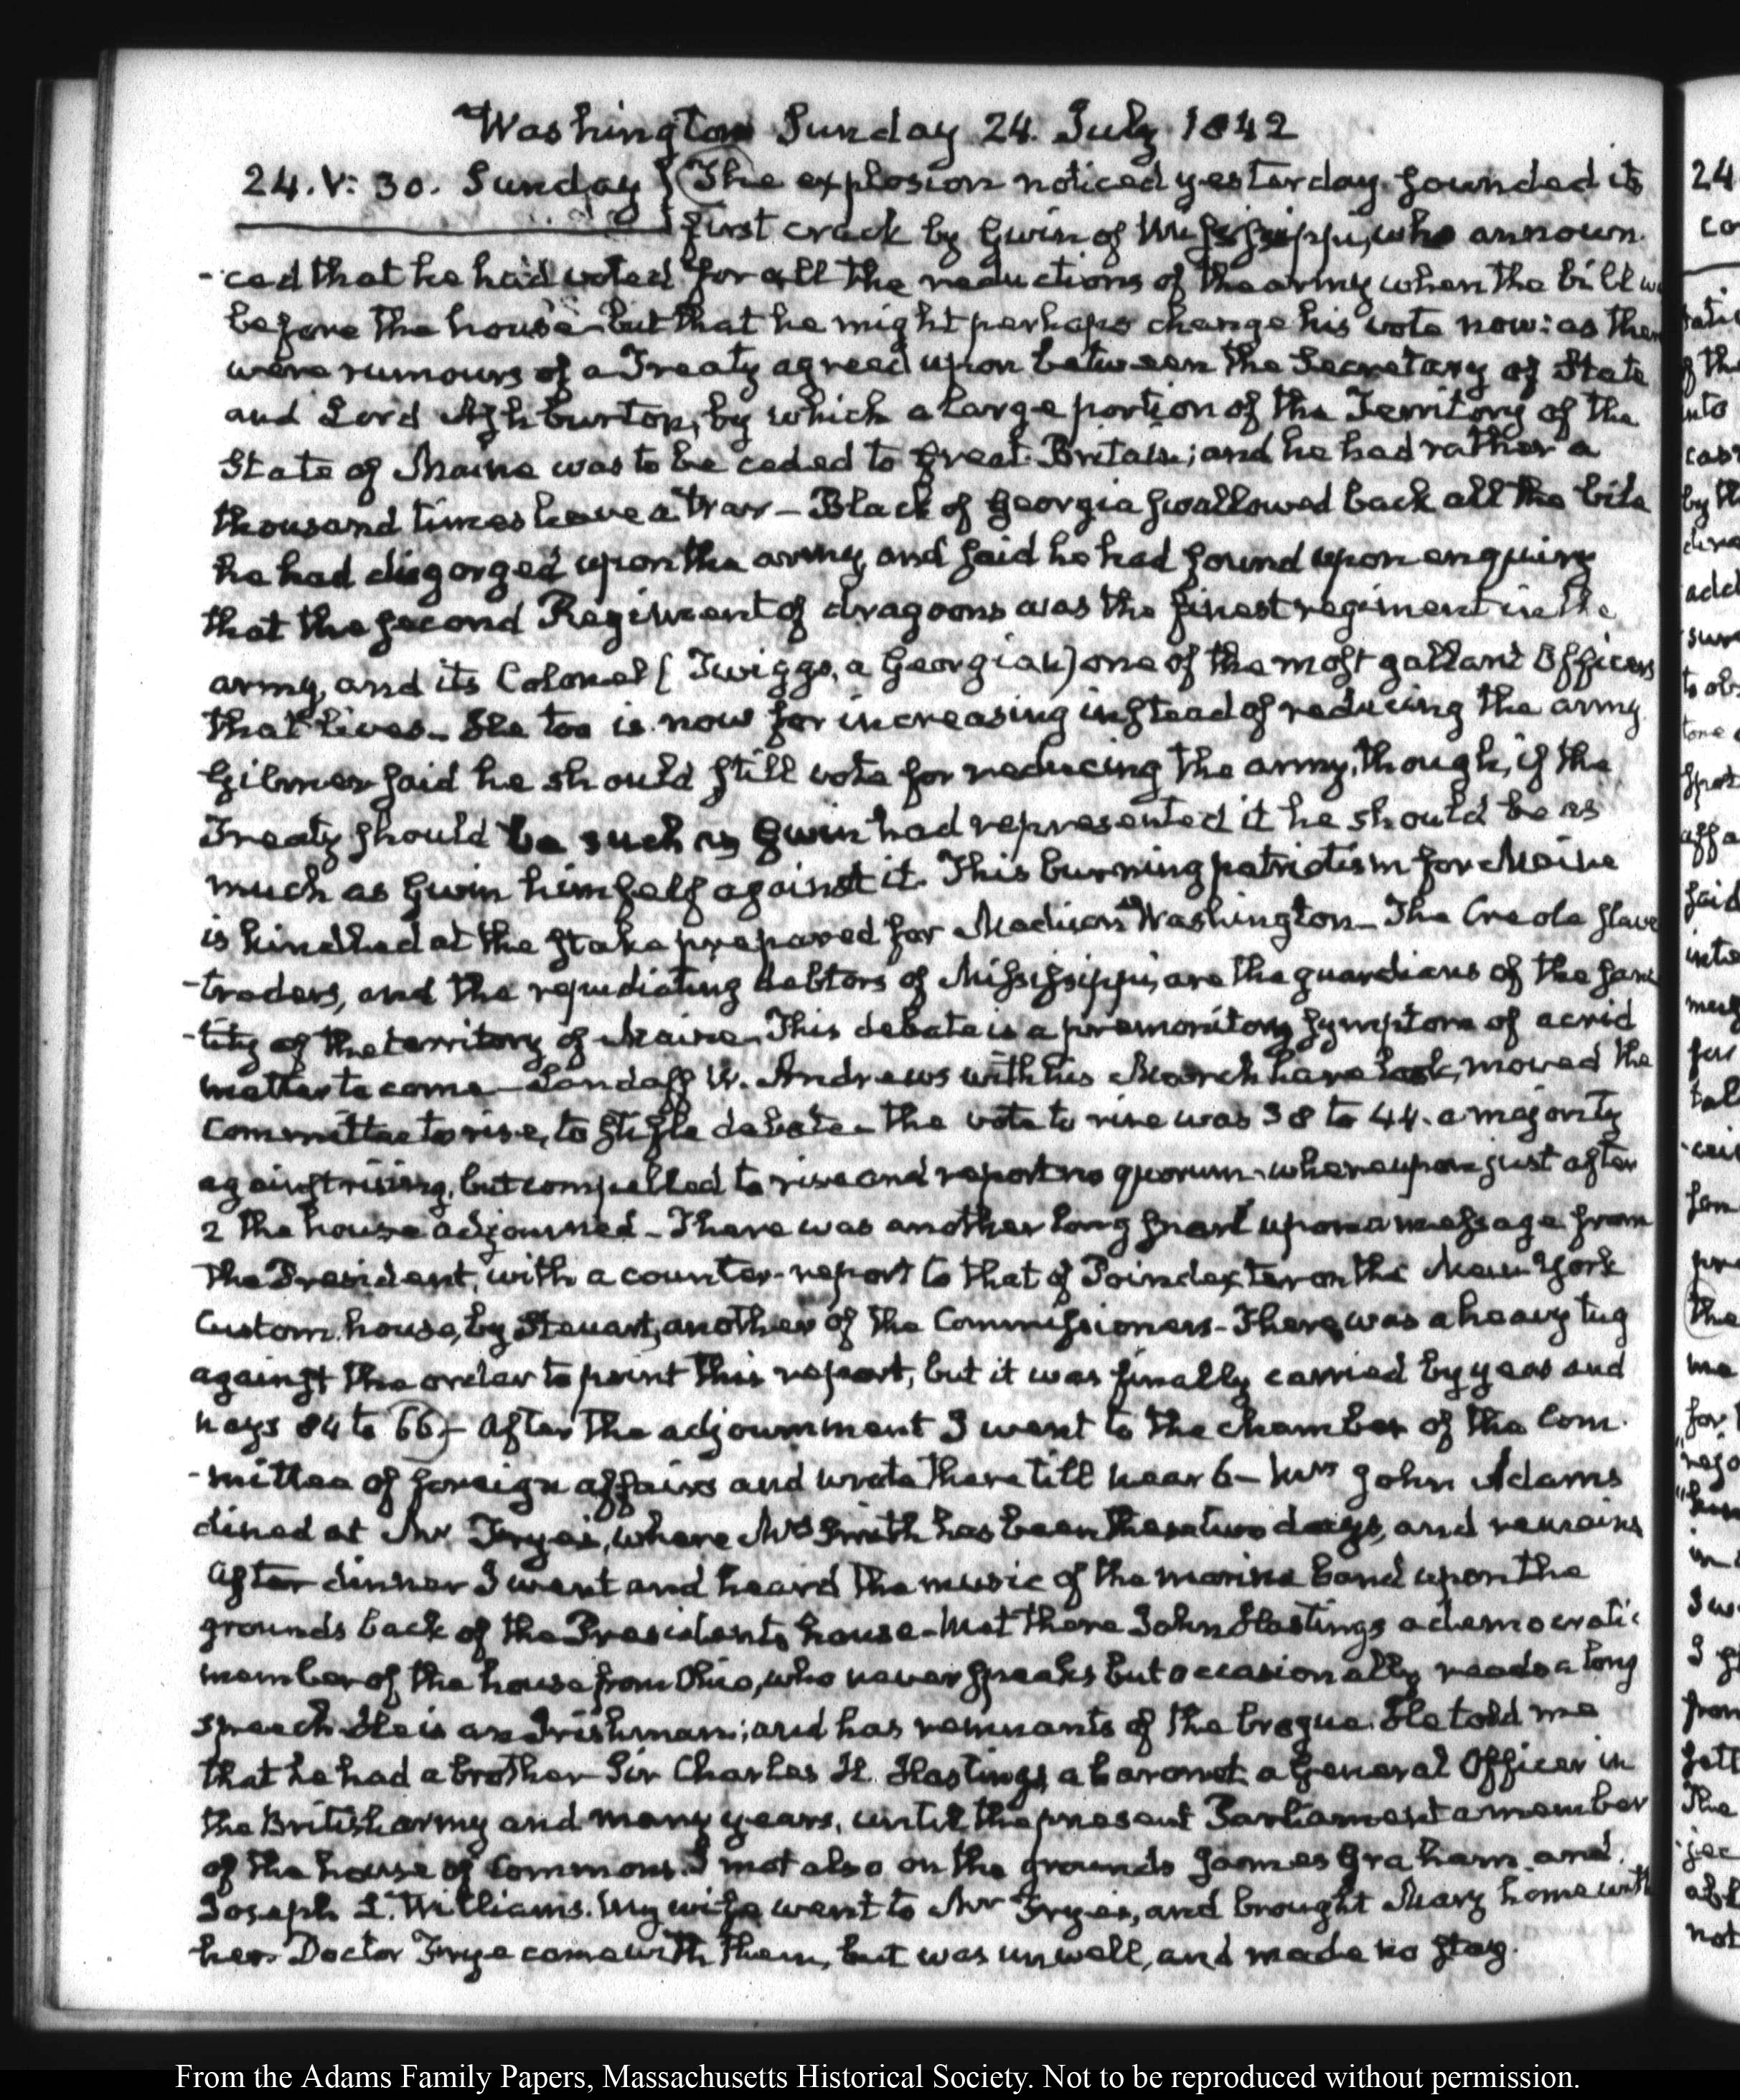 Washington Sunday 24. July 1842
24. V: 30. Sunday { The explosion noticed yesterday sounded its
first crack by Gwin of Mississippi, who announ-
-ced that he had voted for all the reductions of the army when the bill w
before the house but that he might perhaps change his vote now: as ther
were rumours of a Treaty agreed upon between the Secretary of State
and Lord Ashburton, by which a large portion of the Territory of the
State of Maine was to be ceded to Great Britain; and he had rather a
thousand times have a war – Black of Georgia swallowed back all the bile
he had disgorged upon the army, and said he had found upon enquiry
that the second Regiment of dragoons was the finest regiment in the
army, and its Colonel (Twiggs, a Georgian) one of the most gallant Officers
that lives – He too is now for increasing instead of reducing the army
Gilmer said he should still vote for reducing the army, though, if the
Treaty should be such as Gwin had represented it he should be as
much as Gwin himself against it. This burning patriotism for Maine
is kindled at the stake prepared for Madison Washington – The Creole slave
-traders, and the repudiating debtors of Mississippi, are the guardians of the sanc
-tity of the territory of Maine – This debate is a premonitory symptom of acrid
matter to come – Landaff W. Andrews with his March hare look, moved the
Committee to rise, to stifle debate – the vote to rise was 38 to 44. a majority
against rising, but compelled to rise and report no quorum – whereupon just after
2 the house adjourned – There was another long snarl upon a message from
the President, with a counter-report to that of Poindexter on the New-York
Custom house, by Steuart, another of the Commissioners – There was a heavy tug
against the order to print this report, but it was finally carried by yeas and
nays 84 to 66) – After the adjournment I went to the chamber of the Com-
-mittee of foreign affairs and wrote there till near 6 – Mrs John Adams
dined at Mr Frye's, where Mrs Smith has been these two days, and remains
After dinner I went and heard the music of the marine band upon the
grounds back of the Presidents house – Met there John Hastings a democratic
member of the house from Ohio, who never speaks but occasionally reads a long
speech. He is an Irishman; and has remnants of the brogue. He told me
that he had a brother Sir Charles H. Hastings, a baronet a General Officer in
the British army and many years, until the present Parliament a member
of the house of Commons. I met also on the grounds James Graham and
Joseph L. Williams. My wife went to Mr Frye's, and brought Mary home with
her. Doctor Frye came with them, but was unwell, and made no stay.
From the Adams Family Papers, Massachusetts Historical Society. Not to be reproduced without permission.